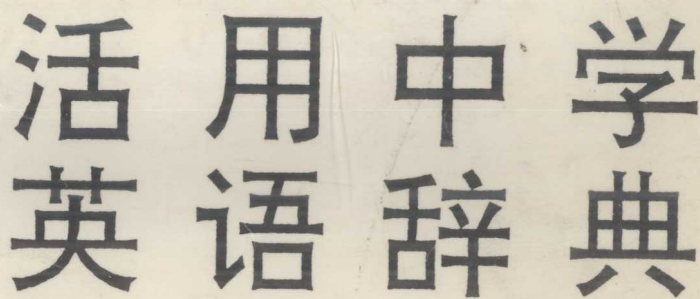 活用中学
英语辞典